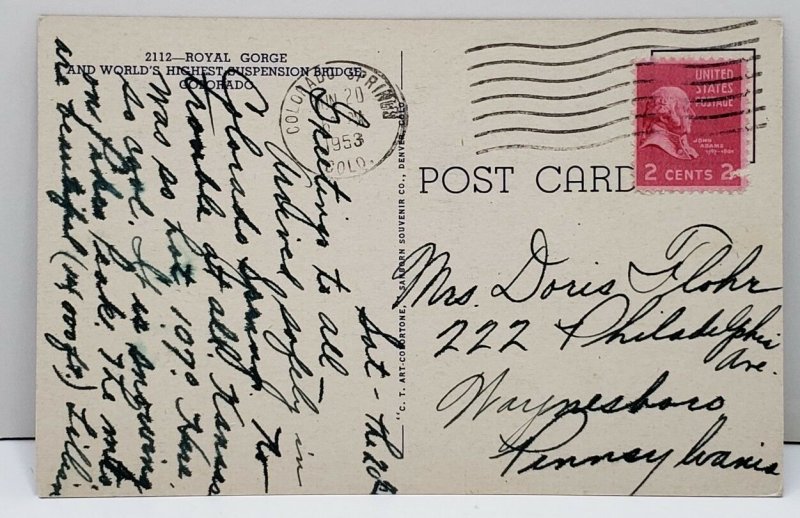 2112—ROYAL GORGE
AND WORLD'S HIGHEST SUSPENSION BRIDGE,
COLORADO
COLORADO SPRINGS
JUN 20
1953
COLO.
UNITED
STATES
POSTAGE
JOHN
ADAMS
1797-1801
2 CENTS 2
POST CARD
"C. T. ART-COLORTONE," SANBORN SOUVENIR CO., DENVER, COLO.
Sat - the 20th
Greetings to all —
Arrived safely in
Colorado Springs. No
trouble at all. Kansas
was so hot 107° Here
so cool. It is snowing
on Pikes Peak. The mts
are beautiful (14,000 ft.) Lillian
Mrs. Doris Flohr
222 Philadelphia
Ave.
Waynesboro
Pennsylvania